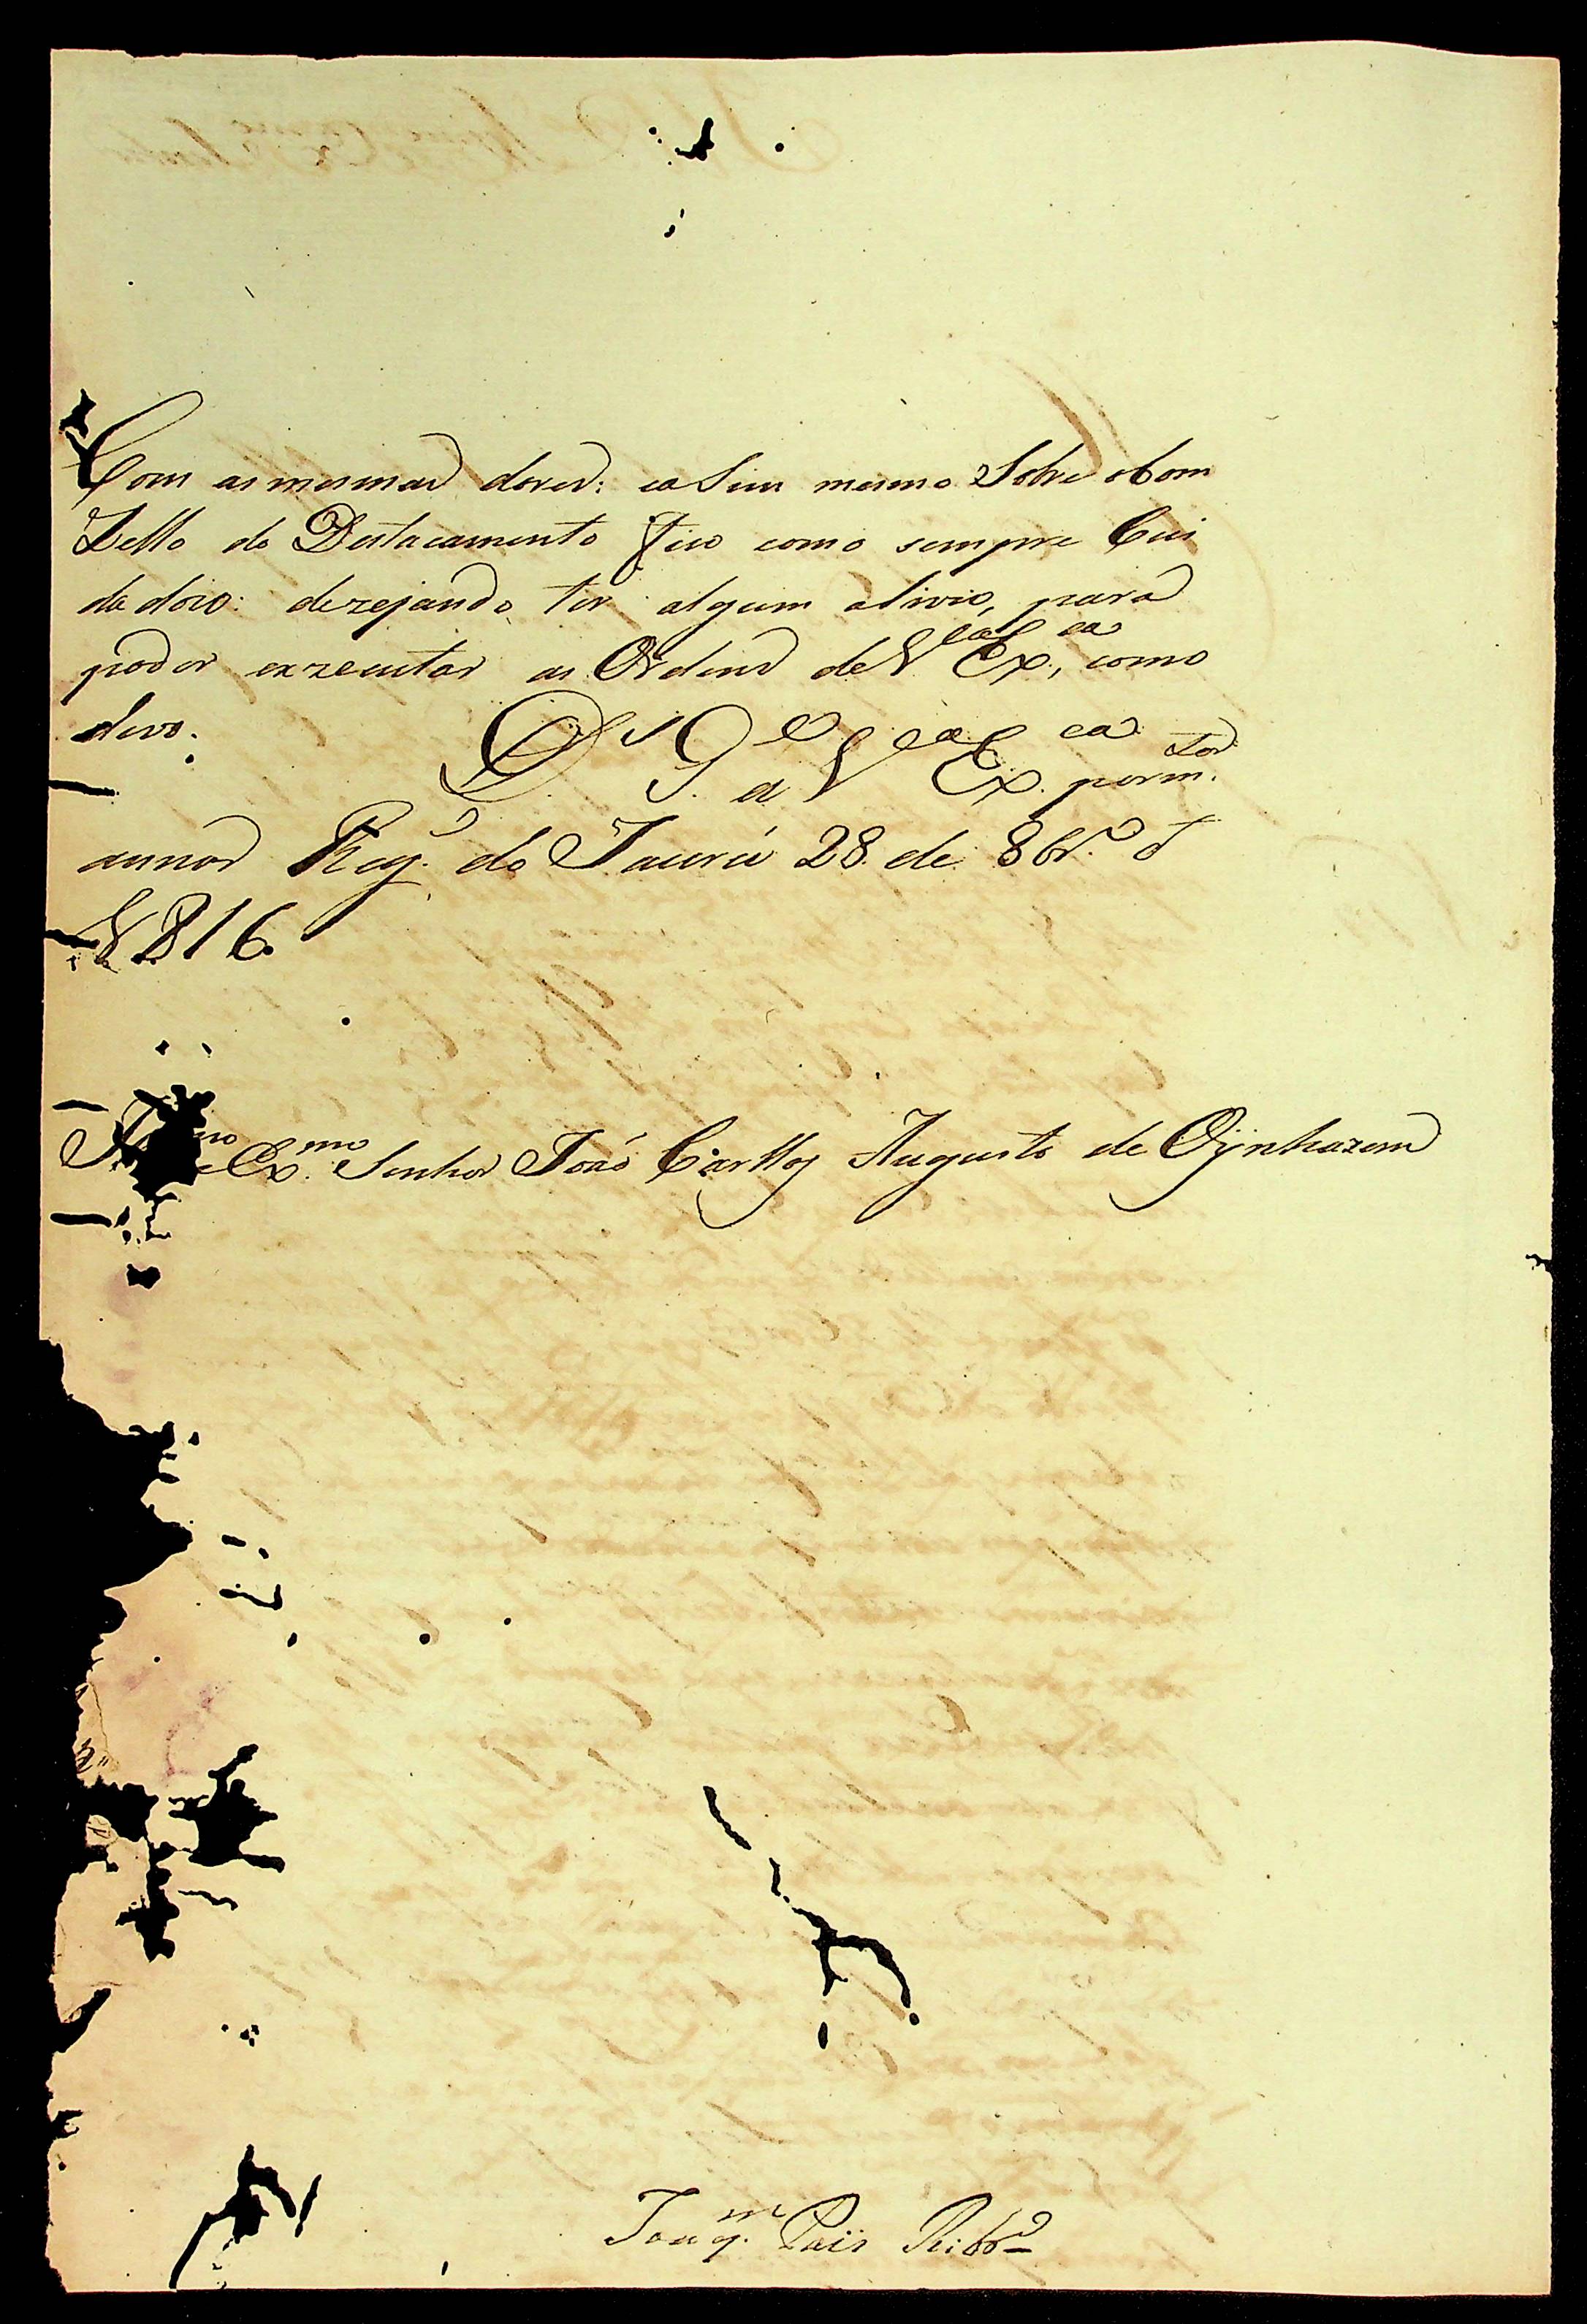 Com as mesmas dores: eaSim mesmo Sobre obom
Zello do Destacamento fico como sempre Cui
dadozo: dezejando ter algum alivio, para
poder exzecutar as Ordens deV.ª Ex.ca, como
devo.
D.s G.e a V.ª Ex.ca porm.tos
annos Reg.o do Jaurú 28 de 8br.o d
1816.
e Ex.mo Senhor João Carllos Augusto de Oÿnhazem
Joaq.m Pais Ribr.o